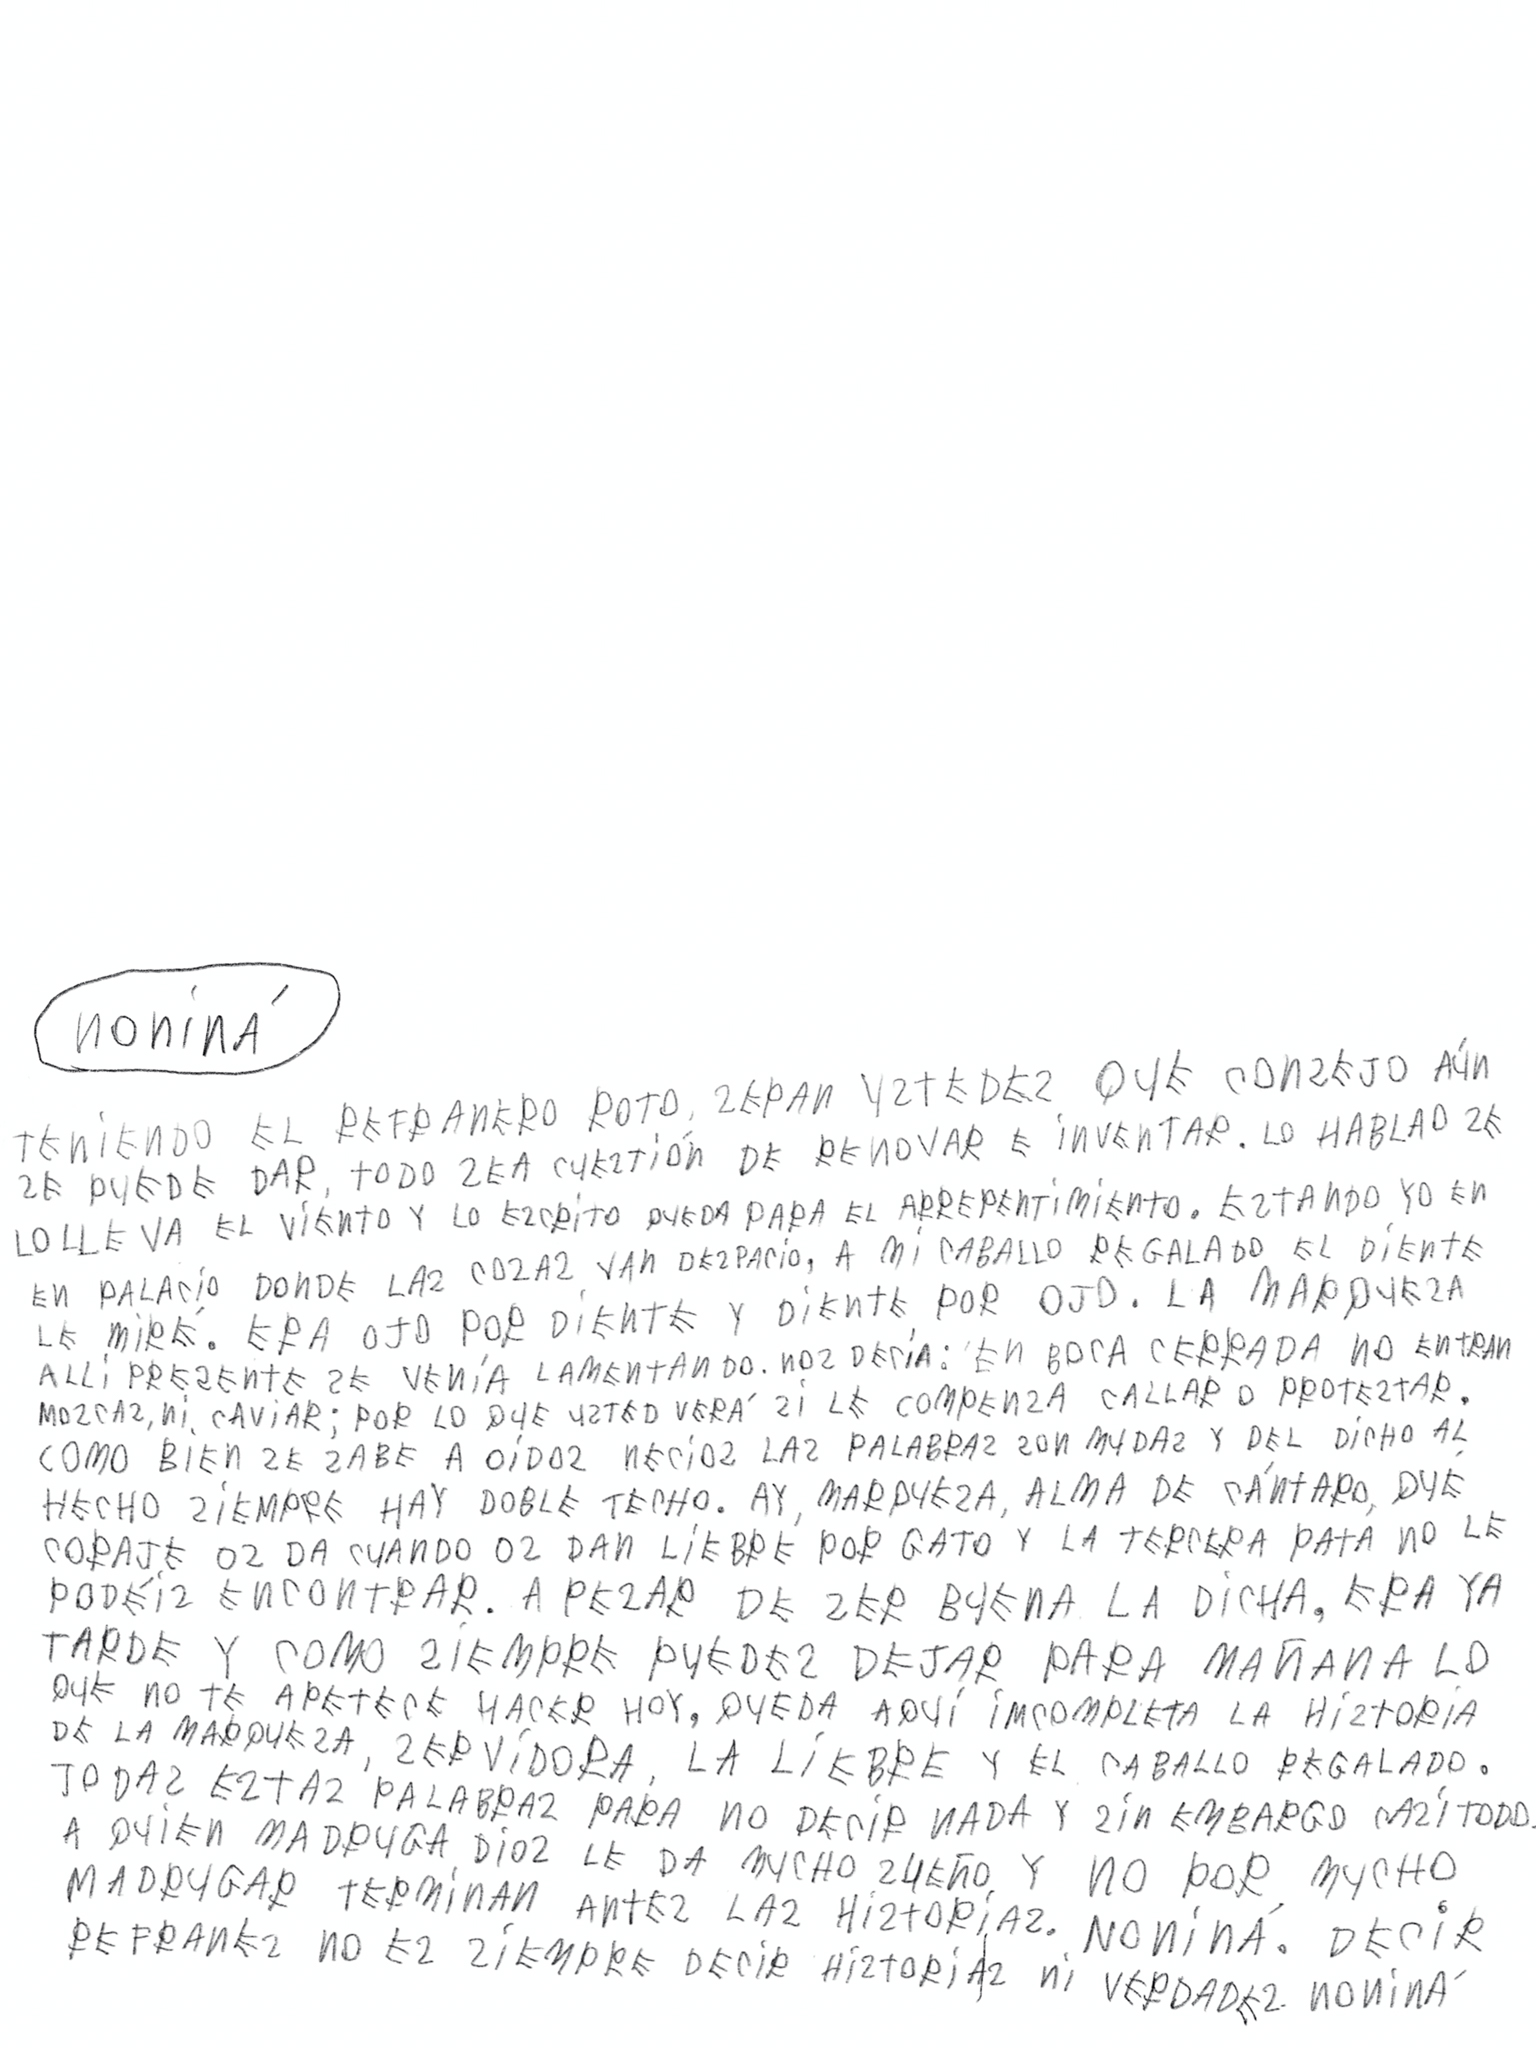 NONINÁ
TENIENDO EL REFRANERO ROTO, ZEPAN UZTEDEZ QUE CONZEJO AÚN
ZE PUEDE DAR, TODO ZEA CUEZTIÓN DE RENOVAR E INVENTAR. LO HABLAO ZE
LO LLEVA EL VIENTO Y LO EZCRITO QUEDA PARA EL ARREPENTIMIENTO. EZTANDO YO EN
EN PALACIO DONDE LAZ COZAZ VAN DEZPACIO, A MI CABALLO REGALADO EL DIENTE
LE MIRÉ. ERA OJO POR DIENTE Y DIENTE POR OJO. LA MARQUEZA
ALLI PREZENTE ZE VENÍA LAMENTANDO. NOZ DECÍA: EN BOCA CERRADA NO ENTRAN
MOZCAZ, NI CAVIAR; POR LO QUE UZTED VERÁ ZI LE COMPENZA CALLAR O PROTEZTAR.
COMO BIEN ZE ZABE A OÍDOZ NECIOZ LAZ PALABRAZ ZON MUDAZ Y DEL DICHO AL
HECHO ZIEMPRE HAY DOBLE TECHO. AY, MARQUEZA, ALMA DE CÁNTARO, QUÉ
CORAJE OZ DA CUANDO OZ DAN LIEBRE POR GATO Y LA TERCERA PATA NO LE
PODÉIZ ENCONTRAR. A PEZAR DE ZER BUENA LA DICHA, ERA YA
TARDE Y COMO ZIEMPRE PUEDEZ DEJAR PARA MAÑANA LO
QUE NO TE APETECE HACER HOY, QUEDA AQUÍ IMCOMPLETA LA HIZTORIA
DE LA MARQUEZA, ZERVIDORA, LA LIEBRE Y EL CABALLO REGALADO.
TODAZ EZTAZ PALABRAZ PARA NO DECIR NADA Y ZIN EMBARGO CAZI TODO.
A QUIEN MADRUGA DIOZ LE DA MUCHO ZUEÑO Y NO POR MUCHO
MADRUGAR TERMINAN ANTEZ LAZ HIZTORIAZ. NONINÁ. DECIR
REFRANEZ NO EZ ZIEMPRE DECIR HIZTORIAZ NI VERDADEZ. NONINÁ